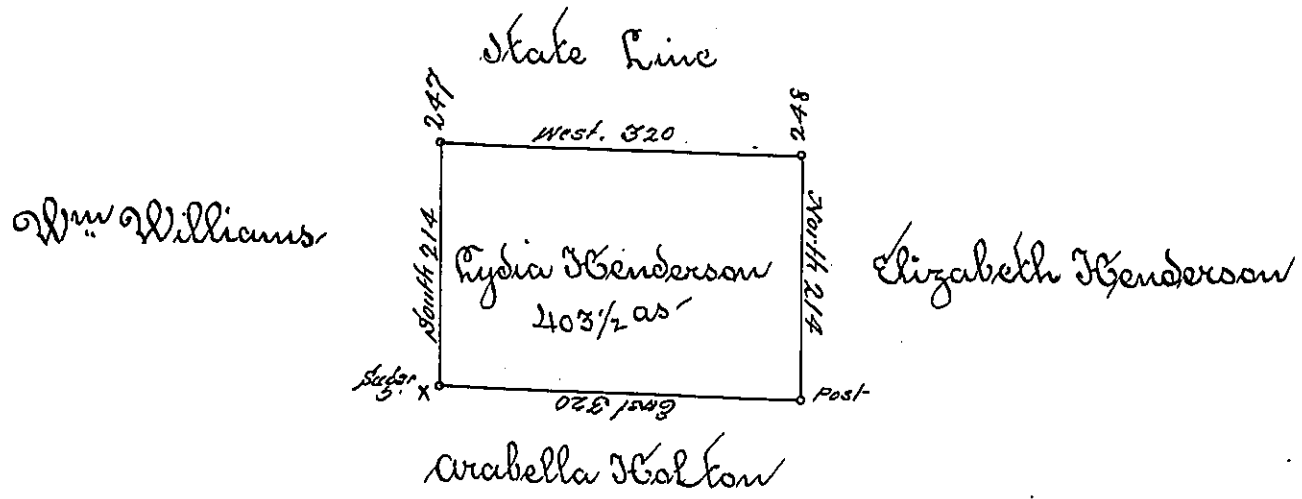 State Line
247
248
West. 320
Wm Williams
South 214
Lydia Henderson
403 1/2 as
North 214
Elizabeth Henderson
Sugar
X
East 320
Post
Arabella Holton